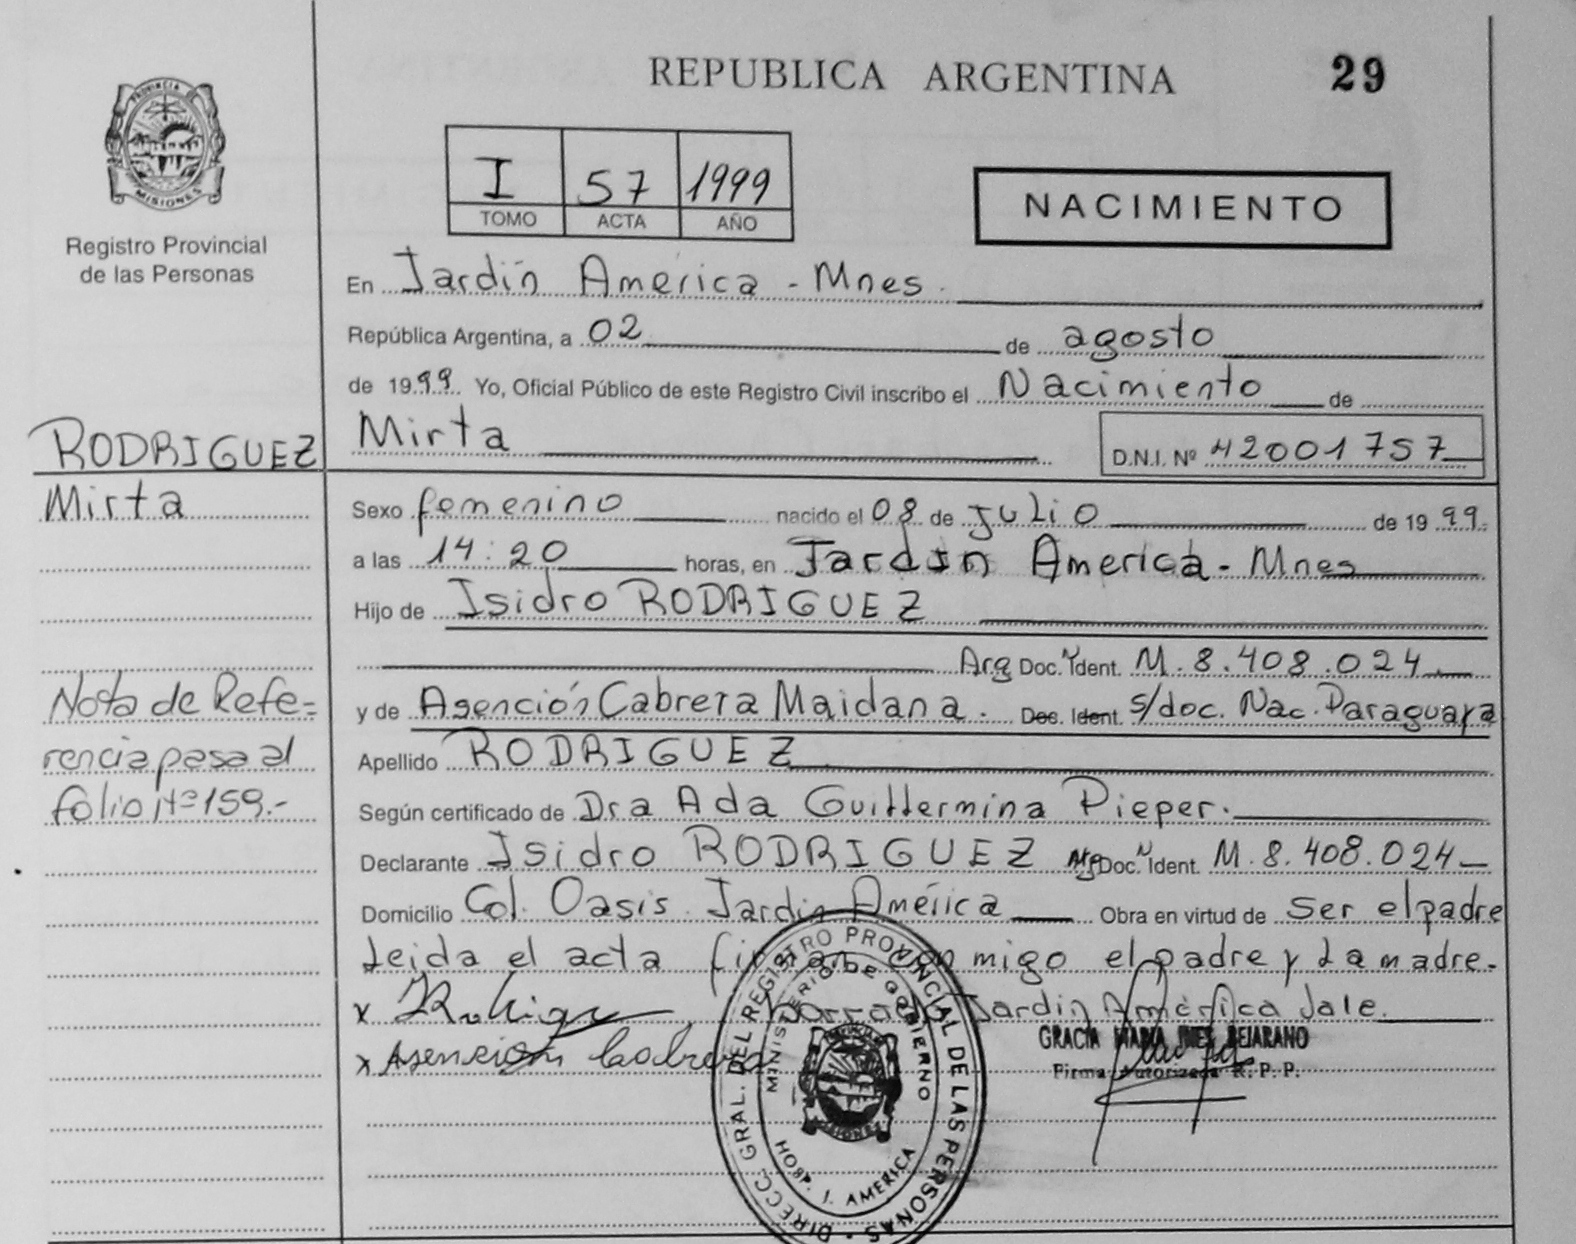 REPUBLICA ARGENTINA
29
PROVINCIA DE
MISIONES
Registro Provincial
de las Personas
I 57 1999
TOMO ACTA AÑO
NACIMIENTO
En Jardín América - Mnes.
República Argentina, a 02 de agosto
de 1999. Yo, Oficial Público de este Registro Civil inscribo el Nacimiento de
RODRIGUEZ
Mirta
Mirta D.N.I. Nº 42001757
Sexo femenino nacido el 08 de JULIO de 1999.
a las 14:20 horas, en Jardín América - Mnes
Hijo de Isidro RODRIGUEZ
Arg Doc. Ident. M. 8.408.024
y de Asención Cabrera Maidana. Doc. Ident. s/doc. Nac. Paraguaya
Apellido RODRIGUEZ
Nota de Refe=
rencia pasa al
folio Nº 159.-
Según certificado de Dra Ada Guillermina Pieper.
Declarante Isidro RODRIGUEZ Arg Doc. Ident. M. 8.408.024
Domicilio Col. Oasis. Jardín América Obra en virtud de ser el padre
Leida el acta firman conmigo el padre y la madre.
x Rodrigue borrado Jardín América Vale.
x Asención Cabrera
GRACIA MARIA INES BEJARANO
Firma Autorizada R. P. P.
DIRECC. GRAL. DEL REGISTRO PROVINCIAL DE LAS PERSONAS
MINISTERIO DE GOBIERNO
MISIONES
HOSP. J. AMERICA